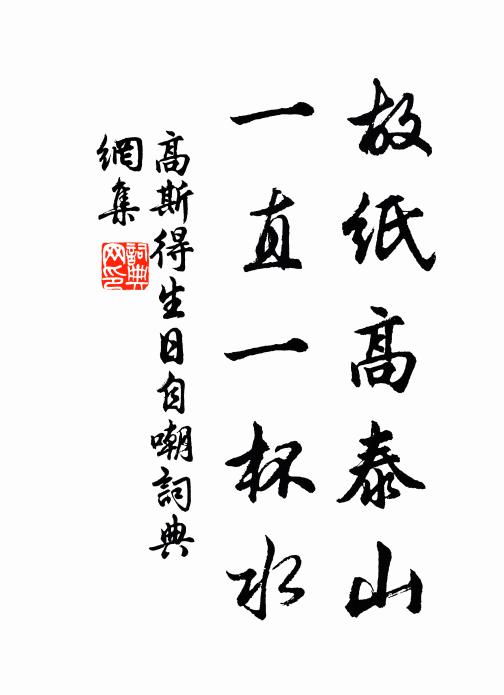 故纸高泰山
一直一杯水
高斯得生日自嘲詞典
網集
詞典
网印